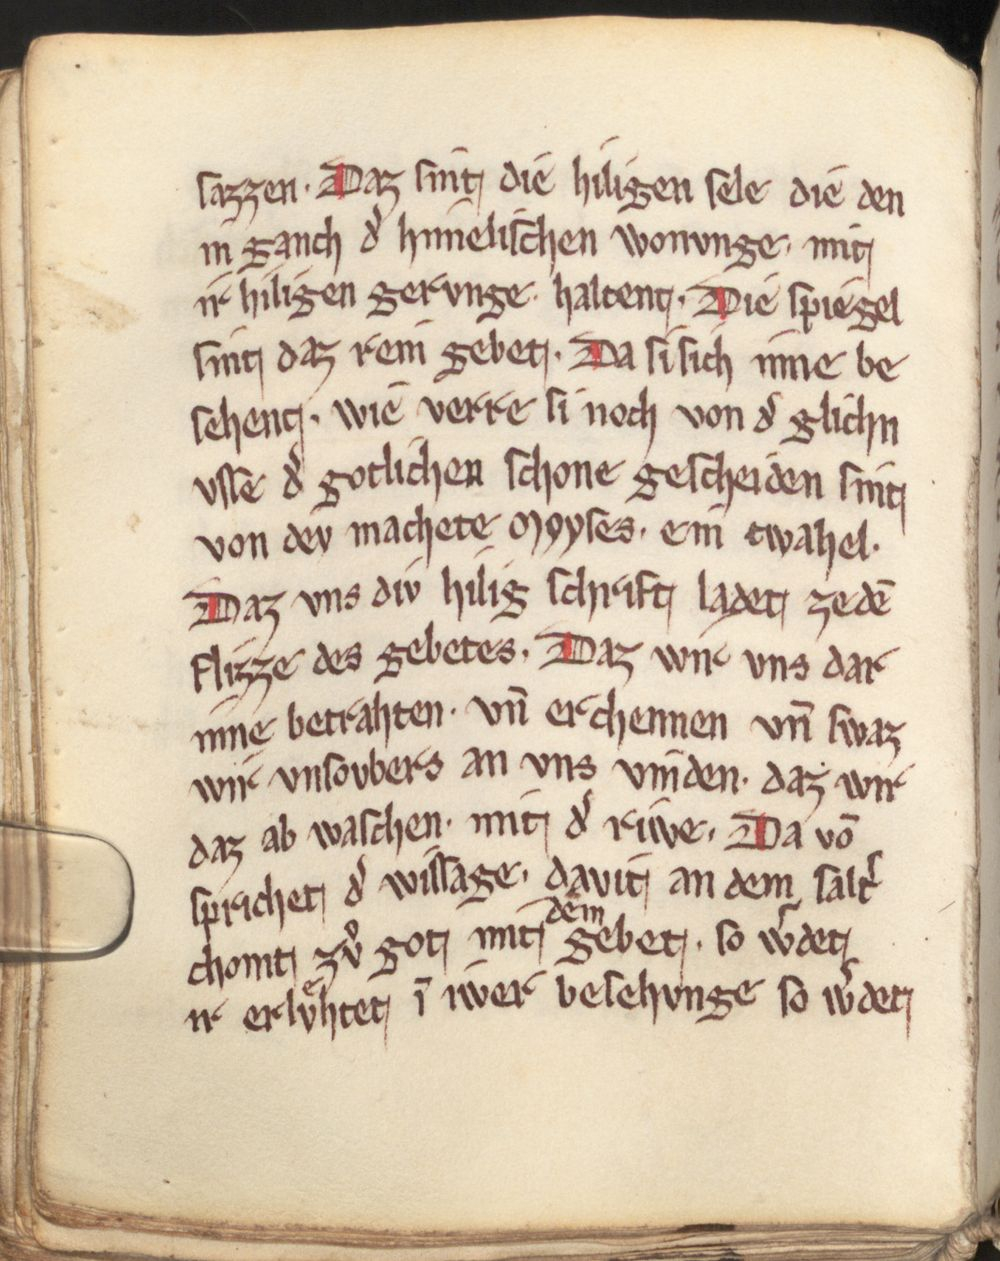 sazzen. Daz sint die hiligen sele die den
in ganch dˀ himelischen wonvnge. mit
ir hiligen gervnge. haltent. Die spiegel
sint daz rein gebet. Da si sich inne be
sehent. wie verre si noch von dˀ glichn
vsse dˀ gotlichen schone gescheiden sint
von dev machete Moyses. ein twahel.
Daz vns div hilig schrift ladet ze dē
flizze des gebetes. Daz wir vns dar
inne betrahten. vn̄ erchennen vn̄ swaz
wir vnsovbers an vns vinden. daz wir
daz ab waschen. mit dˀ riwe. Da vō
sprichet dˀ wissage. davit an dem saltˀ
chomt zvͦ got mit dem gebet. so wˀdet
ir erlvͤhtet ī iwer besehvnge so wˀdet